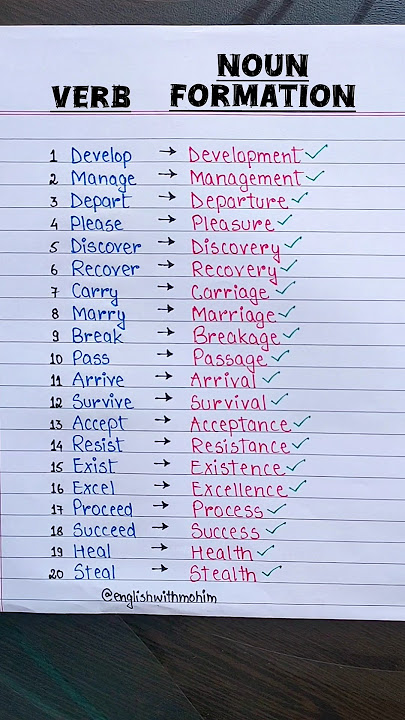 NOUN
VERB FORMATION
1 Develop → Development ✓
2 Manage → Management ✓
3 Depart → Departure ✓
4 Please → Pleasure ✓
5 Discover → Discovery ✓
6 Recover → Recovery ✓
7 Carry → Carriage ✓
8 Marry → Marriage ✓
9 Break → Breakage ✓
10 Pass → Passage ✓
11 Arrive → Arrival ✓
12 Survive → Survival ✓
13 Accept → Acceptance ✓
14 Resist → Resistance ✓
15 Exist → Existence ✓
16 Excel → Excellence ✓
17 Proceed → Process ✓
18 Succeed → Success ✓
19 Heal → Health ✓
20 Steal → Stealth ✓
@englishwithmohim